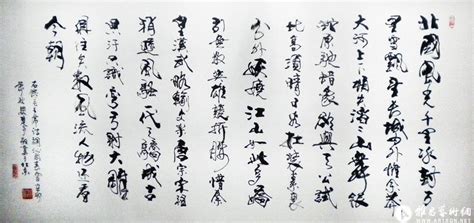 北國風光千里冰封万
里雪飘望長城内外惟余莽莽
大河上下頓失滔滔山舞銀
蛇原馳蜡象欲与天公試
比高須晴日看红装素裹
分外妖娆江山如此多嬌
引無數英雄競折腰惜秦
皇漢武略輸文采唐宗宋祖
稍遜風騷一代天驕成吉
思汗只識彎弓射大雕
俱往矣数風流人物还看
今朝
毛主席詩詞沁園春雪
雅昌艺术网